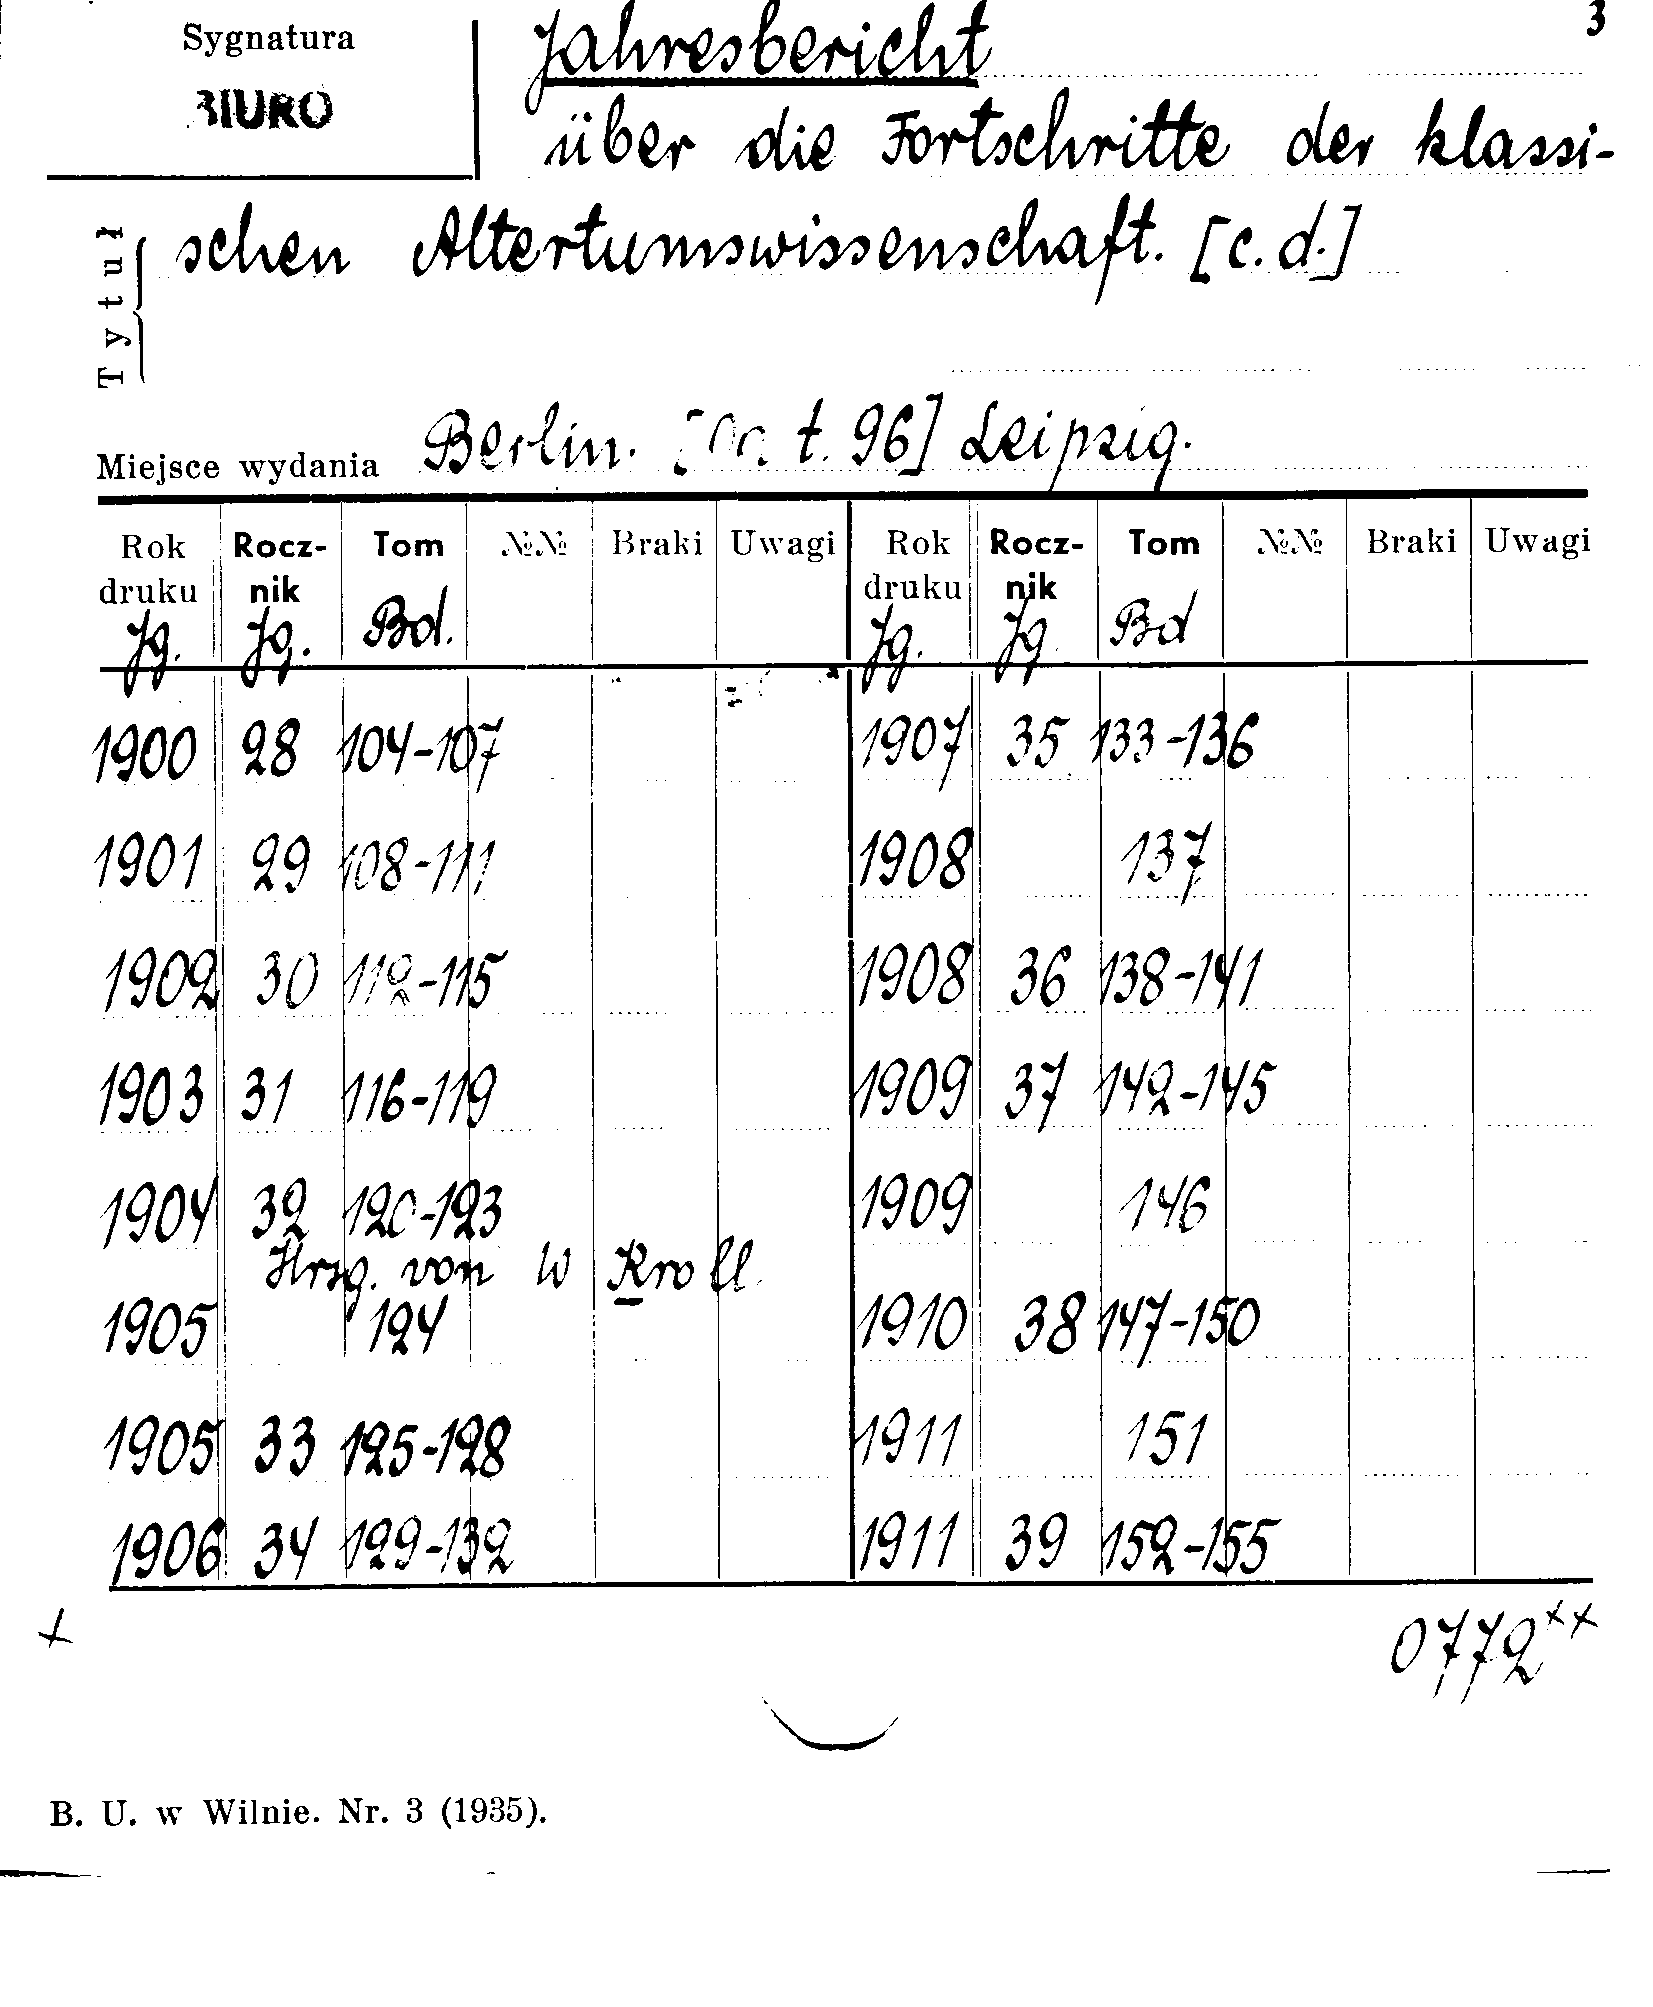 3
Sygnatura
BIURO
Jahresbericht
über die Fortschritte der klassi-
Tytuł
schen Altertumswissenschaft. [c. d.]
Miejsce wydania Berlin. [ t. 96] Leipzig.
Rok druku Rocznik Tom №№ Braki Uwagi Rok druku Rocznik Tom №№ Braki Uwagi
Jg. Jg. Bd. Jg. Jg. Bd
1900 28 104-107 1907 35 133-136
1901 29 108-111 1908 137
1902 30 112-115 1908 36 138-141
1903 31 116-119 1909 37 142-145
1904 32 120-123 1909 146
Hrsg. von W Kroll.
1905 124 1910 38 147-150
1905 33 125-128 1911 151
1906 34 129-132 1911 39 152-155
+ 0772++
B. U. w Wilnie. Nr. 3 (1935).